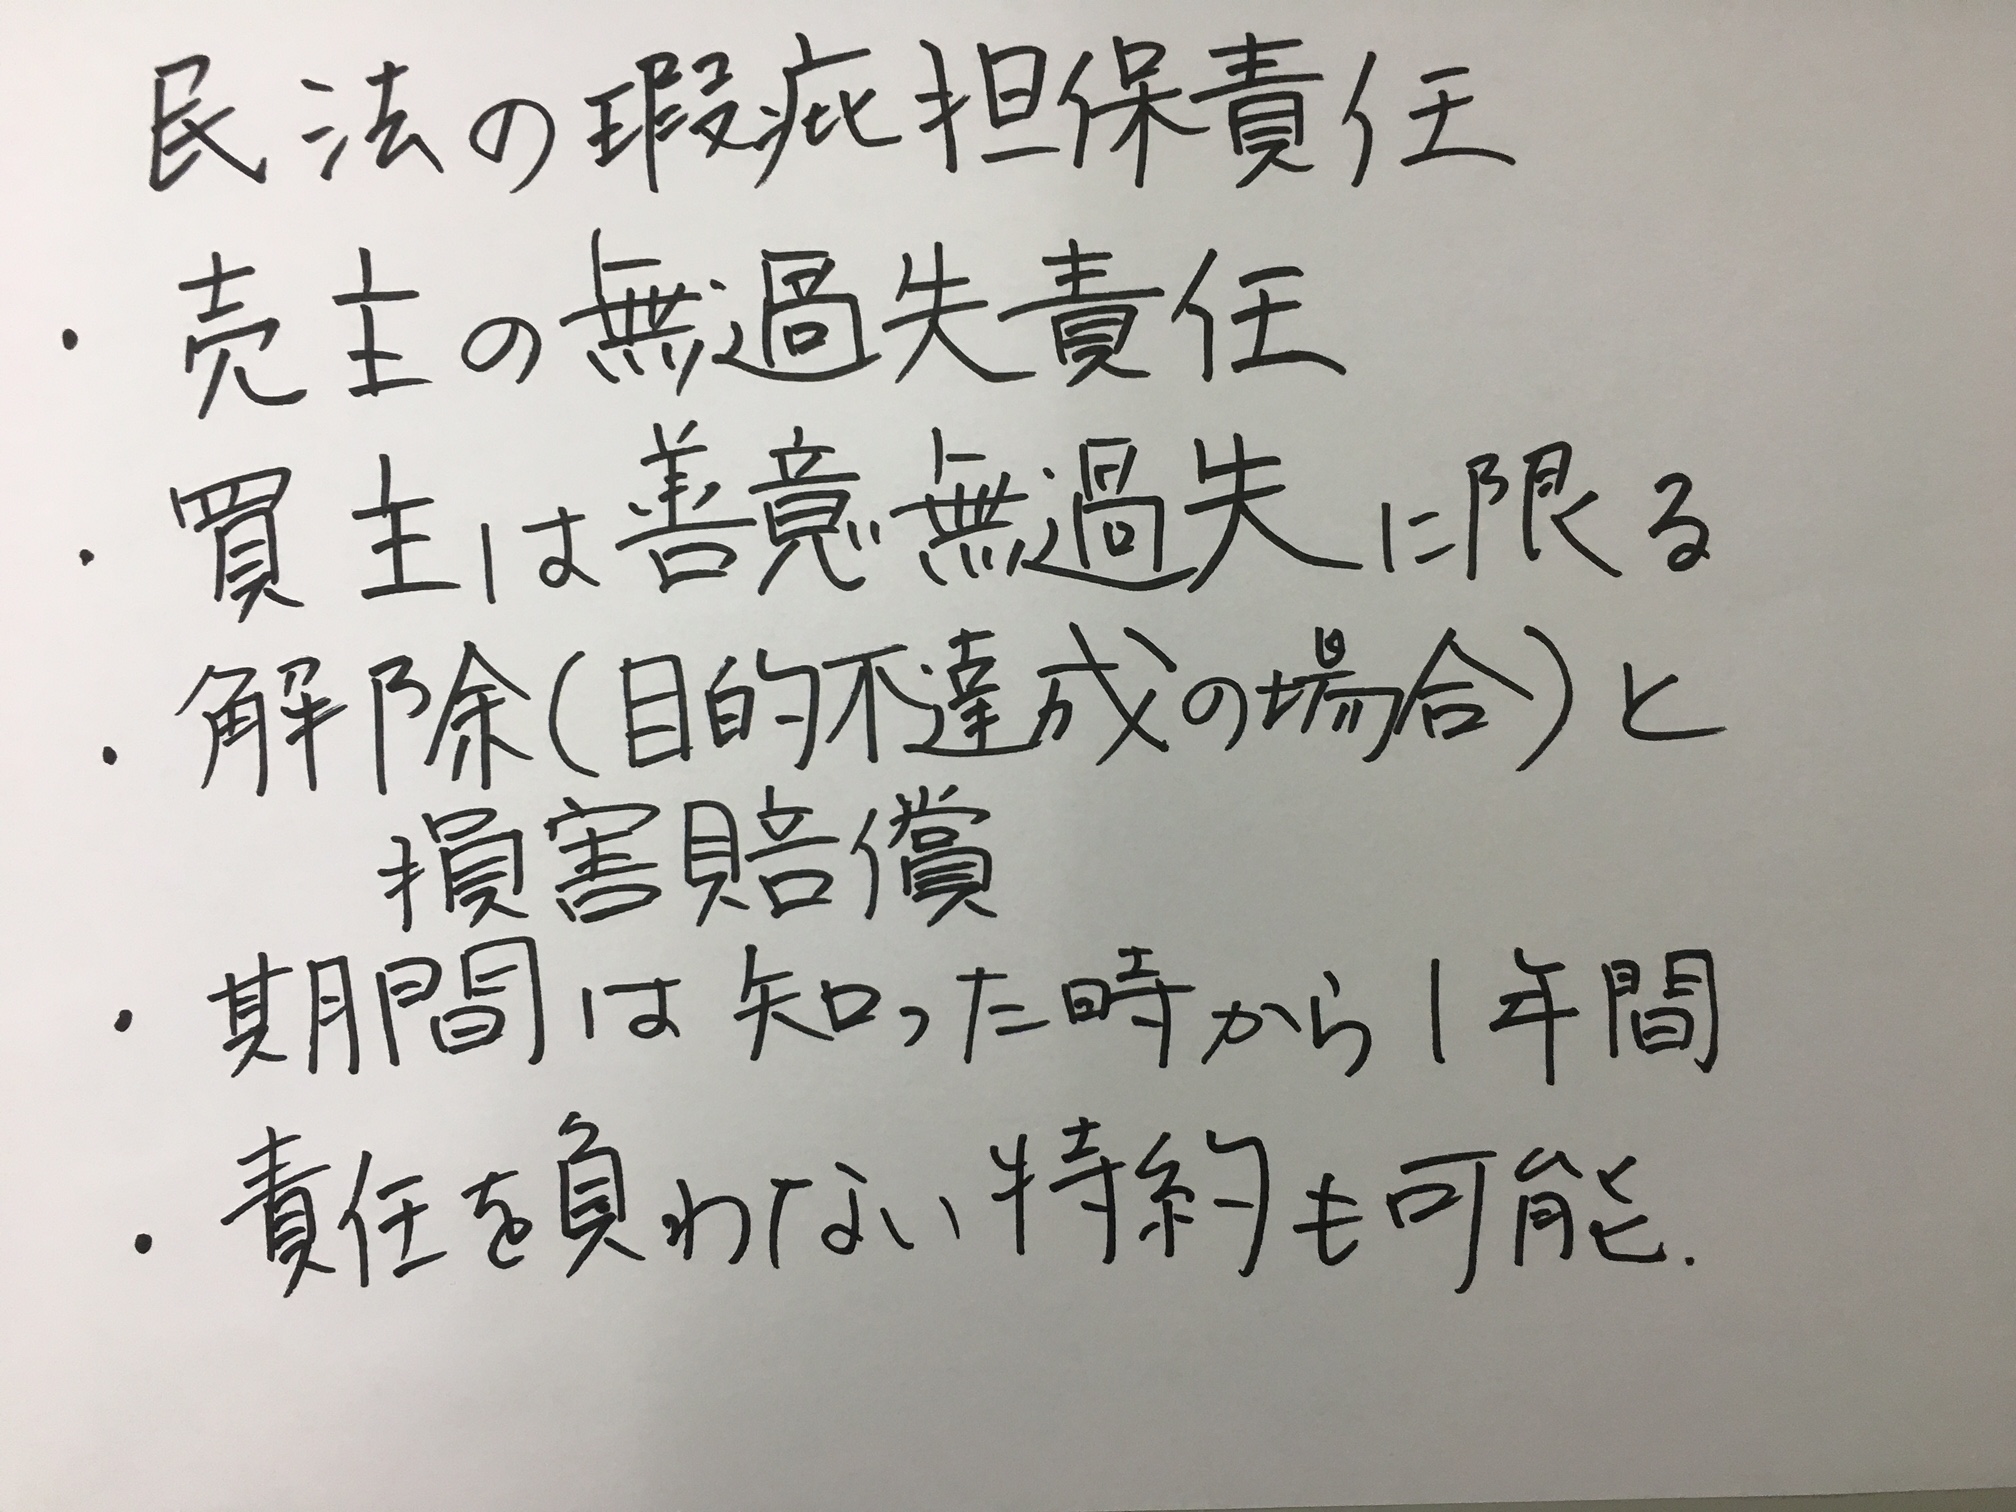 民法の瑕疵担保責任
・売主の無過失責任
・買主は善意無過失に限る
・解除(目的不達成の場合)と
損害賠償
・期間は知った時から1年間
・責任を負わない特約も可能.